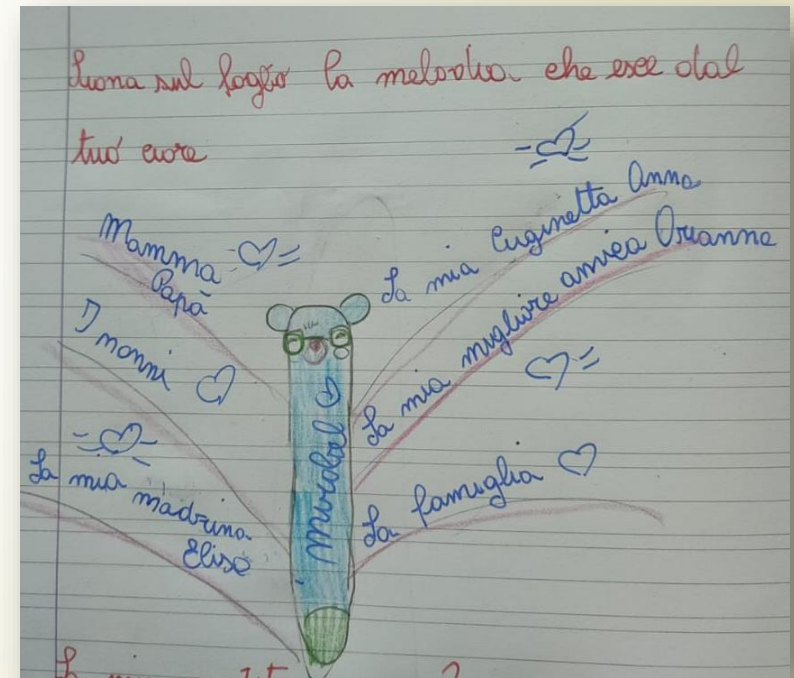 Suona sul foglio la melodia che esce dal
tuo cuore
Mamma
Papà
I nonni
La mia madrina
Elisa
La mia cuginetta Anna
La mia migliore amica Orianna
La famiglia